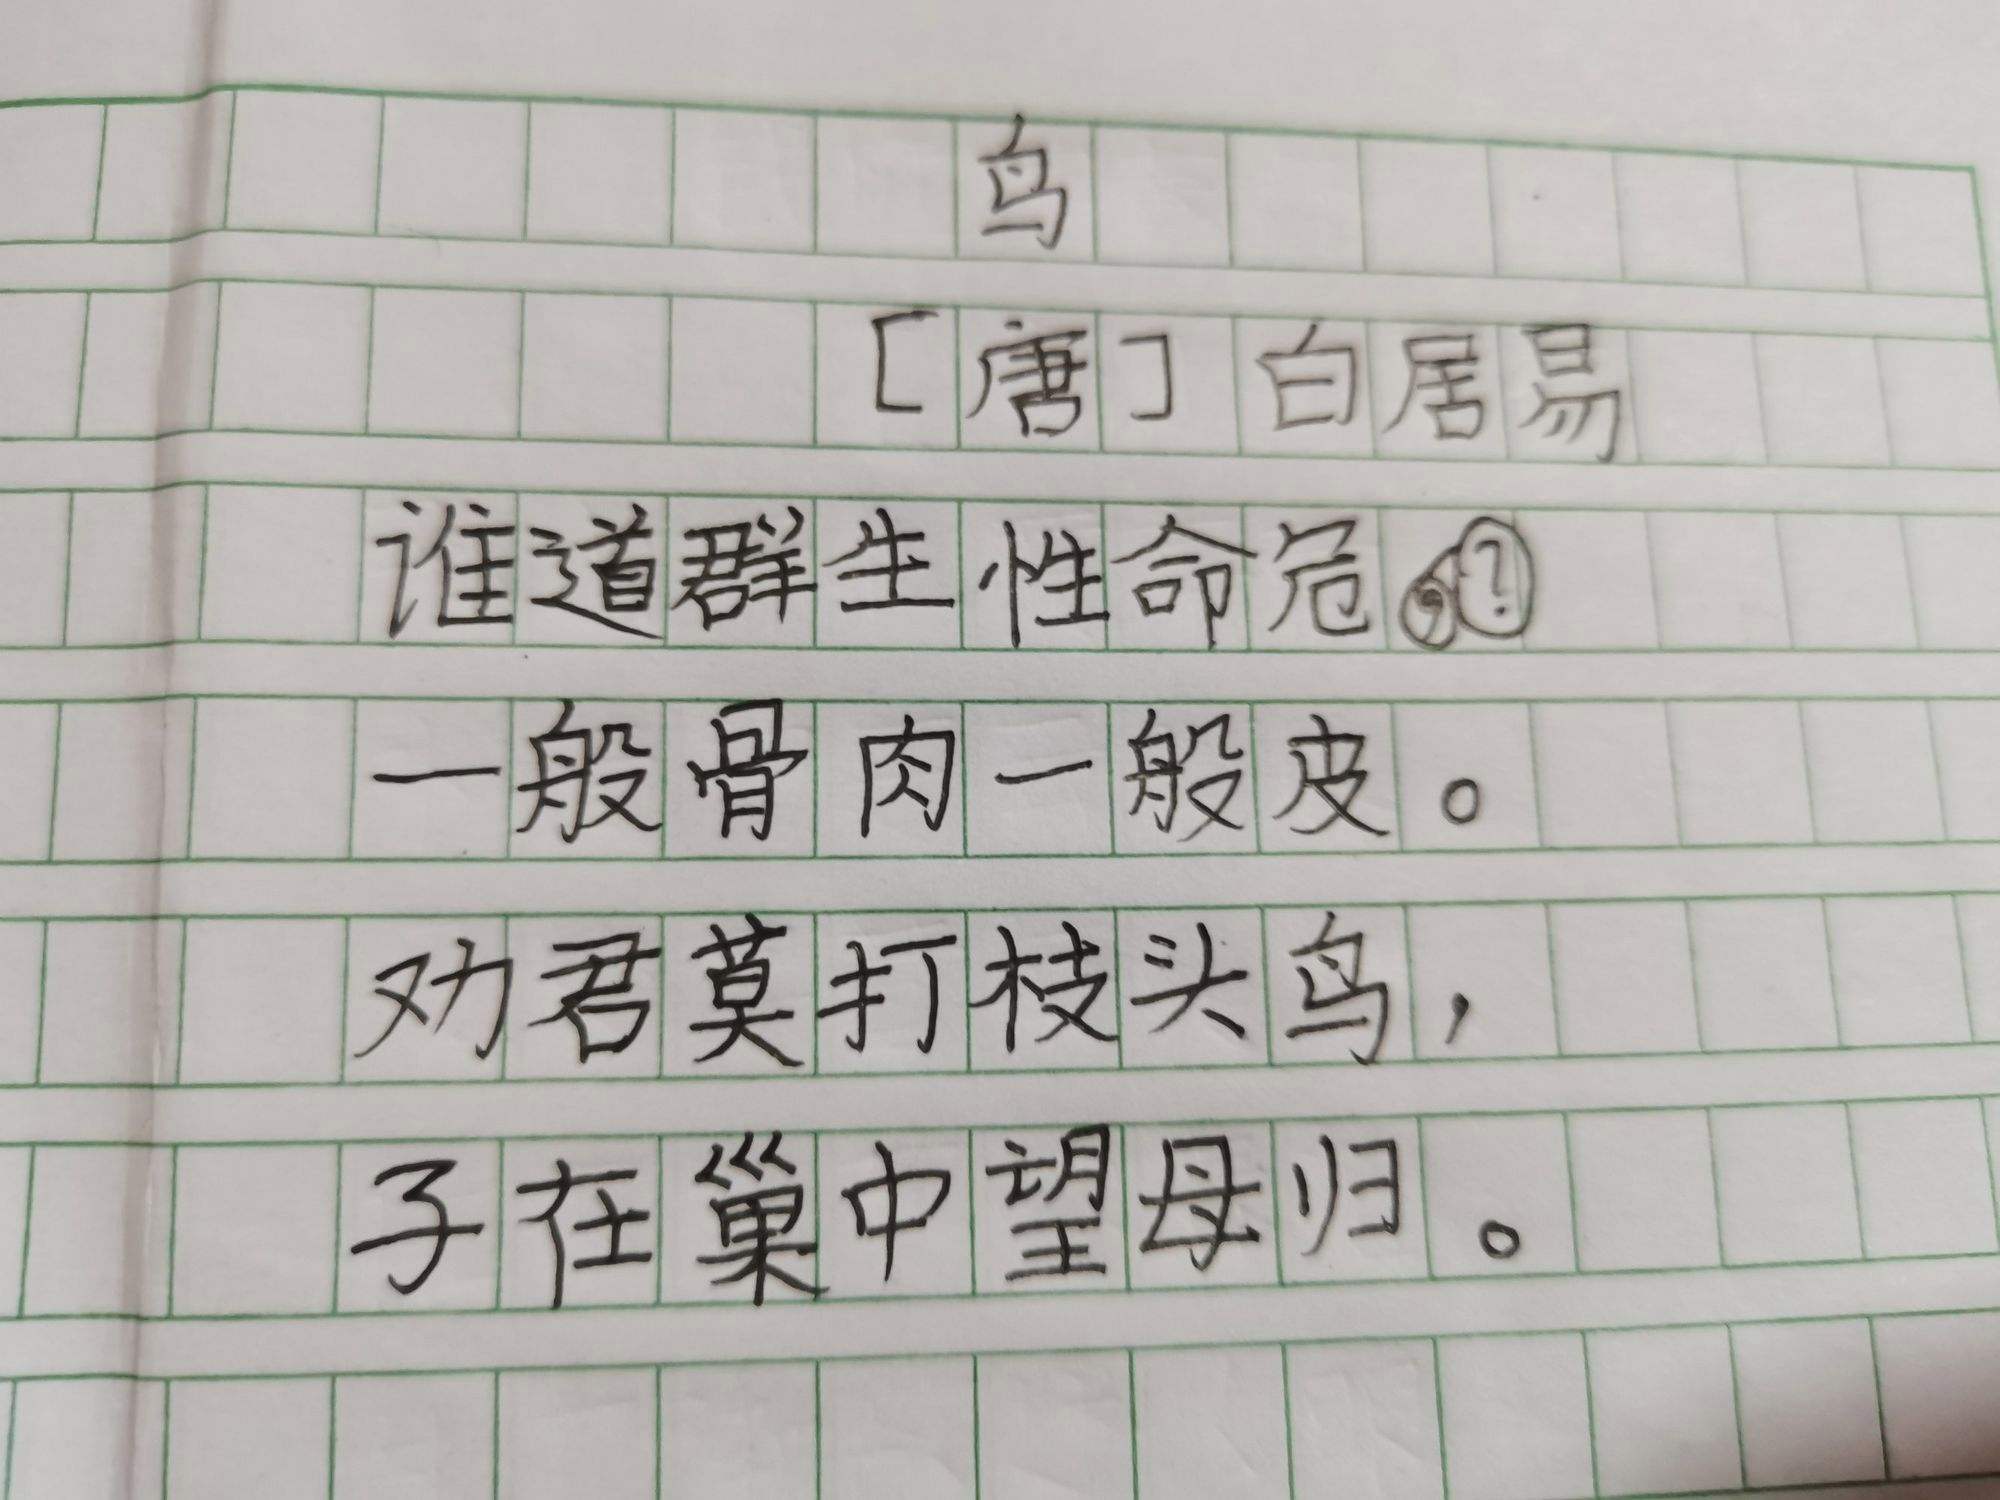 鸟
[唐]白居易
谁道群生性命危,?
一般骨肉一般皮。
劝君莫打枝头鸟,
子在巢中望母归。